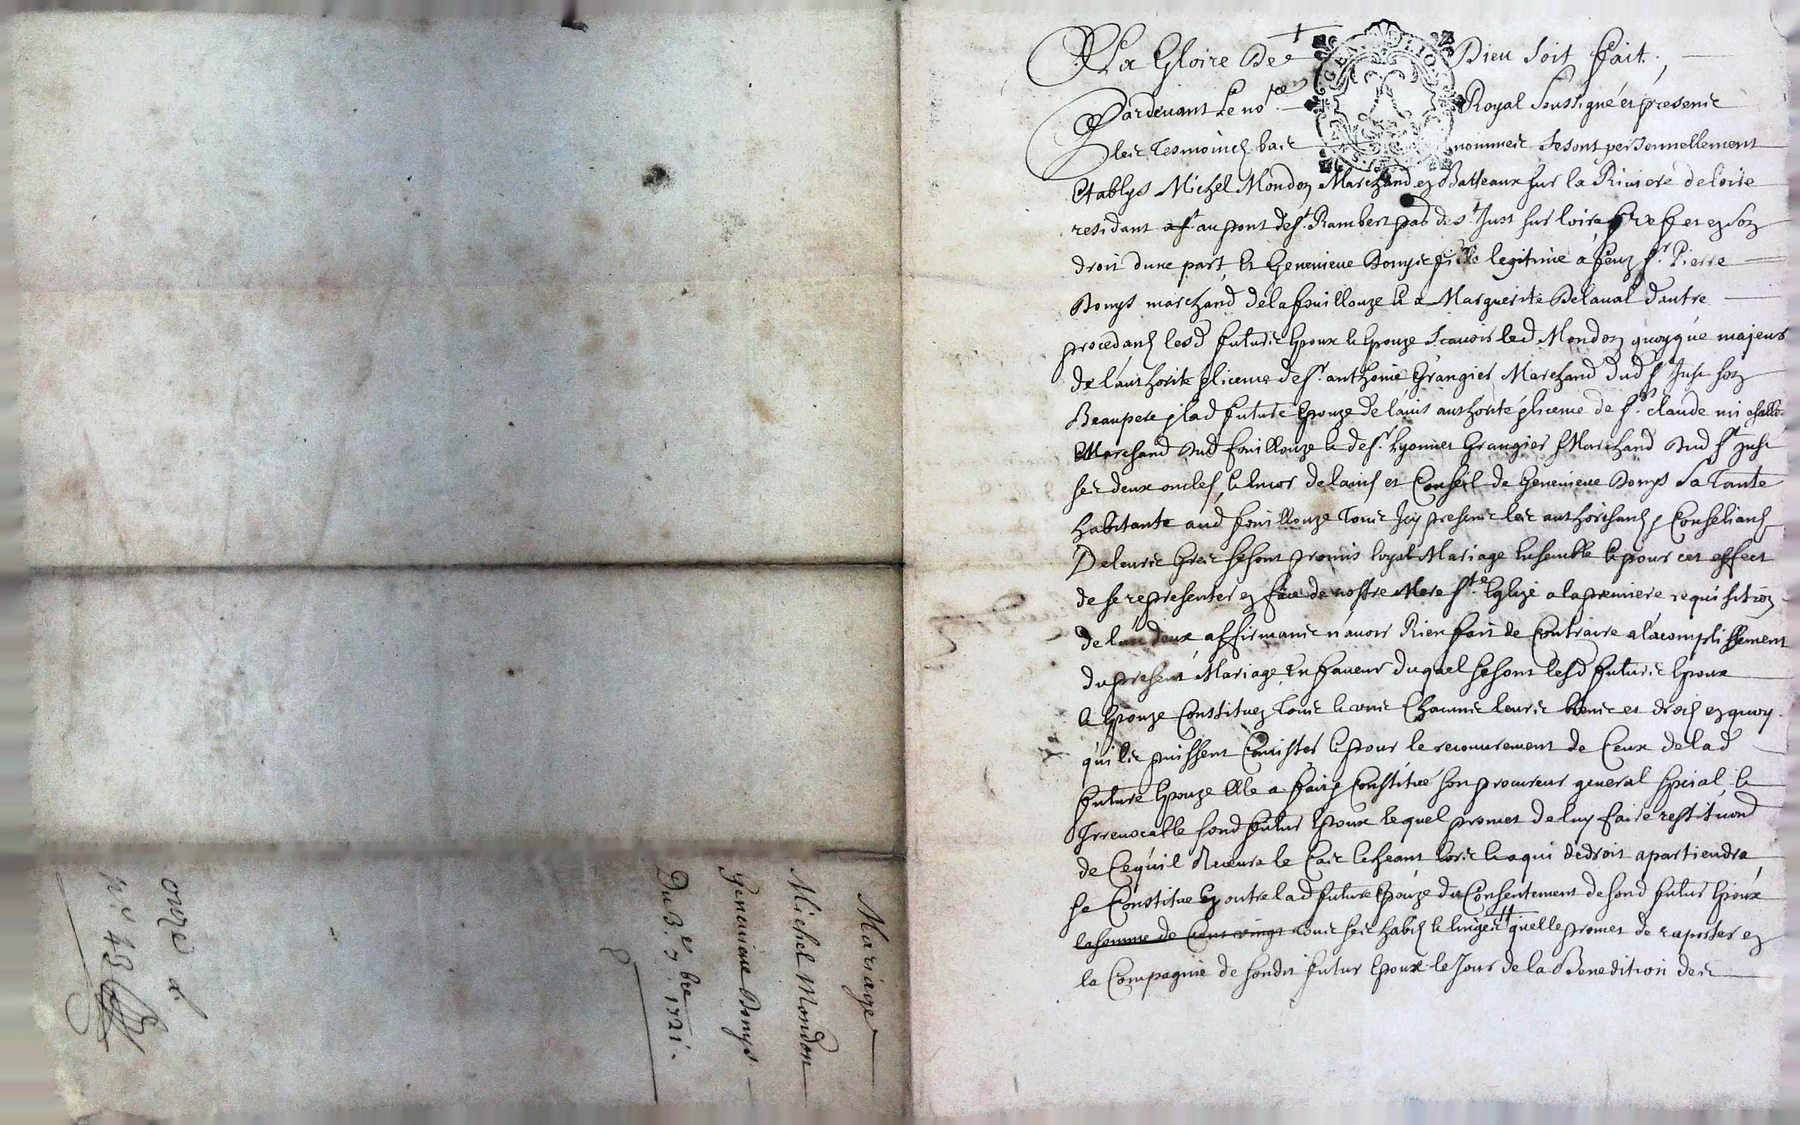 Mariage
Michel Mondon
Genevieve Bonys
Du 3.e 7.bre 1721.
n.e 48
La Gloire De Dieu soit fait.
Pardevant Le no.re Royal Soussigné et presents
les Tesmoins bas nommes se sont personnellement
Etablys Michel Mondon Marchand en Batteaux sur la Riviere de loire
residant au pont de st. Rambert par de st. Just sur loire et en son
droit dune part, Et Genevieve Bonys fille legitime a feuz sr. Pierre
Bonys marchand de la fouillouze & a Marguerite Delaval dautre
procedants lesd futurs Epoux & Epouze scavoir led Mondon quoyque majeur
de lauthorite & licence de sr. anthoine Grangier Marchand dud st Just son
Beaupere & lad future Epouze de lavis authorité & licence de sr. claude
Marchand dud fouillouze & de sr. Lyonnet Grangier Marchand dud st Just
ses deux oncles, & encor de lavis et Conseil de Genevieve Bonys sa Tante
habitante aud fouillouze Tous Icy presents les authorisants & Conseliants
De leurs grés se sont promis loyal Mariage Ensemble & pour cet effect
de se representer en face de nostre Mere ste Eglize a la premiere requisition
de lun deux affirmants n'avoir Rien fait de Contraire a lacomplissement
du present Mariage En faveur duquel se sont lesd futurs Epoux
& Epouze Constituez Tous & uns Chacuns leurs biens et droits en quoy
quils puissent Consister & pour le recouvrement de Ceux de lad
future Epouze Elle a fait & Constitué son procureur general special &
Irrevocable sond futur Epoux lequel promet de luy faire restitu͠on
de Cequil Recevra le Cas Escheant & a qui de droit apartiendra
se Constitue En outre lad future Epouze du Consentement de sond futur Epoux
la somme de Cent vingt Tous ses habits & linges # quelle promet de raporter en
la Compagnie de sondit futur Epoux le Jour de la Benedition des